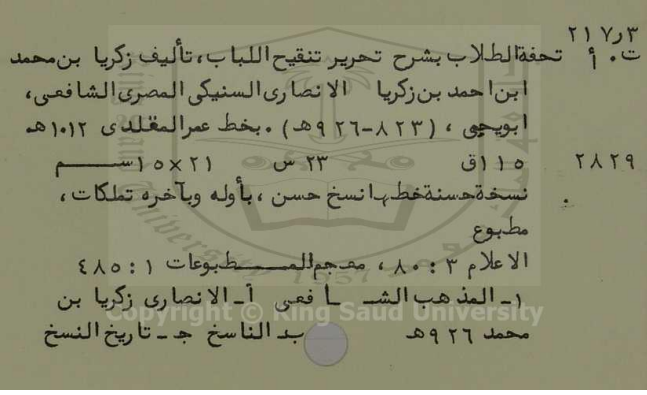 ٢١٧٫٣
ت٠أ تحفةالطلاب بشرح تحرير تنقيح اللباب، تأليف زكريا بن محمد
ابن احمد بن زكريا الانصارى السنيكى المصرى الشافعى،
ابويحيى ، (٨٢٣-٩٢٦هـ) ٠ بخط عمر المقلدى ١٠١٢هـ
٢٨٢٩ ١١٥ق ٢٣ س ٢١×١٥ســـم
نسخة حسنة خطها نسخ حسن ، بأوله وبآخره تملكات ،
مطبوع
الاعلام ٣ : ٨٠ ، معجم المـــطبوعات ١ : ٤٨٥
١ـ المذهب الشــافعى أـ الانصارى زكريا بن
محمد ٩٢٦هـ بـ الناسخ جـ ـ تاريخ النسخ
Copyright © King Saud University